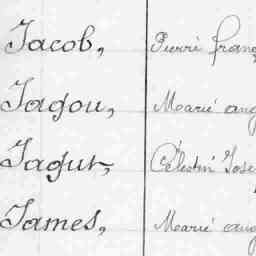 Jacob, Pierre franç
Jagou, Marie aug
Jagut, Célestin Jose
James, Marie aug